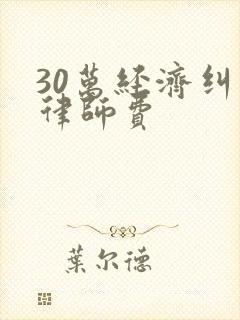 30萬經濟糾
律師費
葉尔德